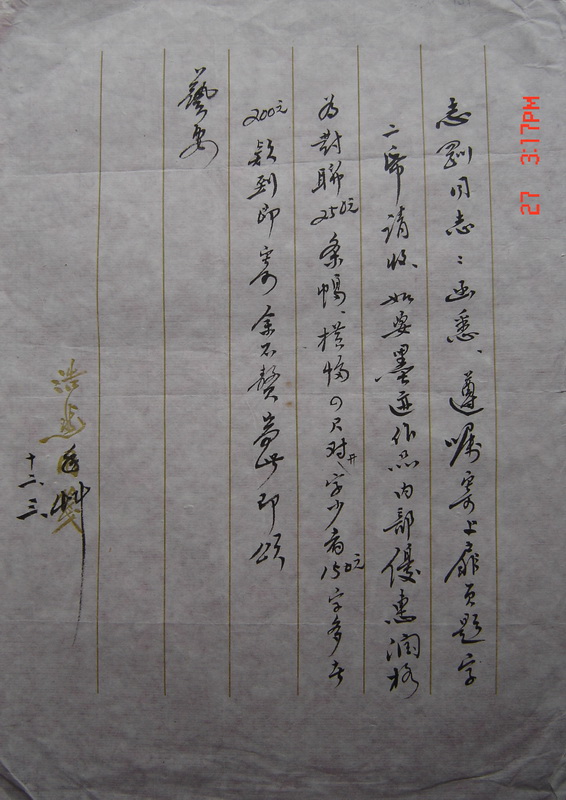 志剛同志：函悉、遵嘱寄上扉页题字
二帋请收、如要墨迹作品内部優惠润格
为對聯250元条幅、横幅4尺对开字少者150元字多者
200元款到即寄余不赘耑此即頌
藝安
浩然用箋
十二、三、
27 3:17PM